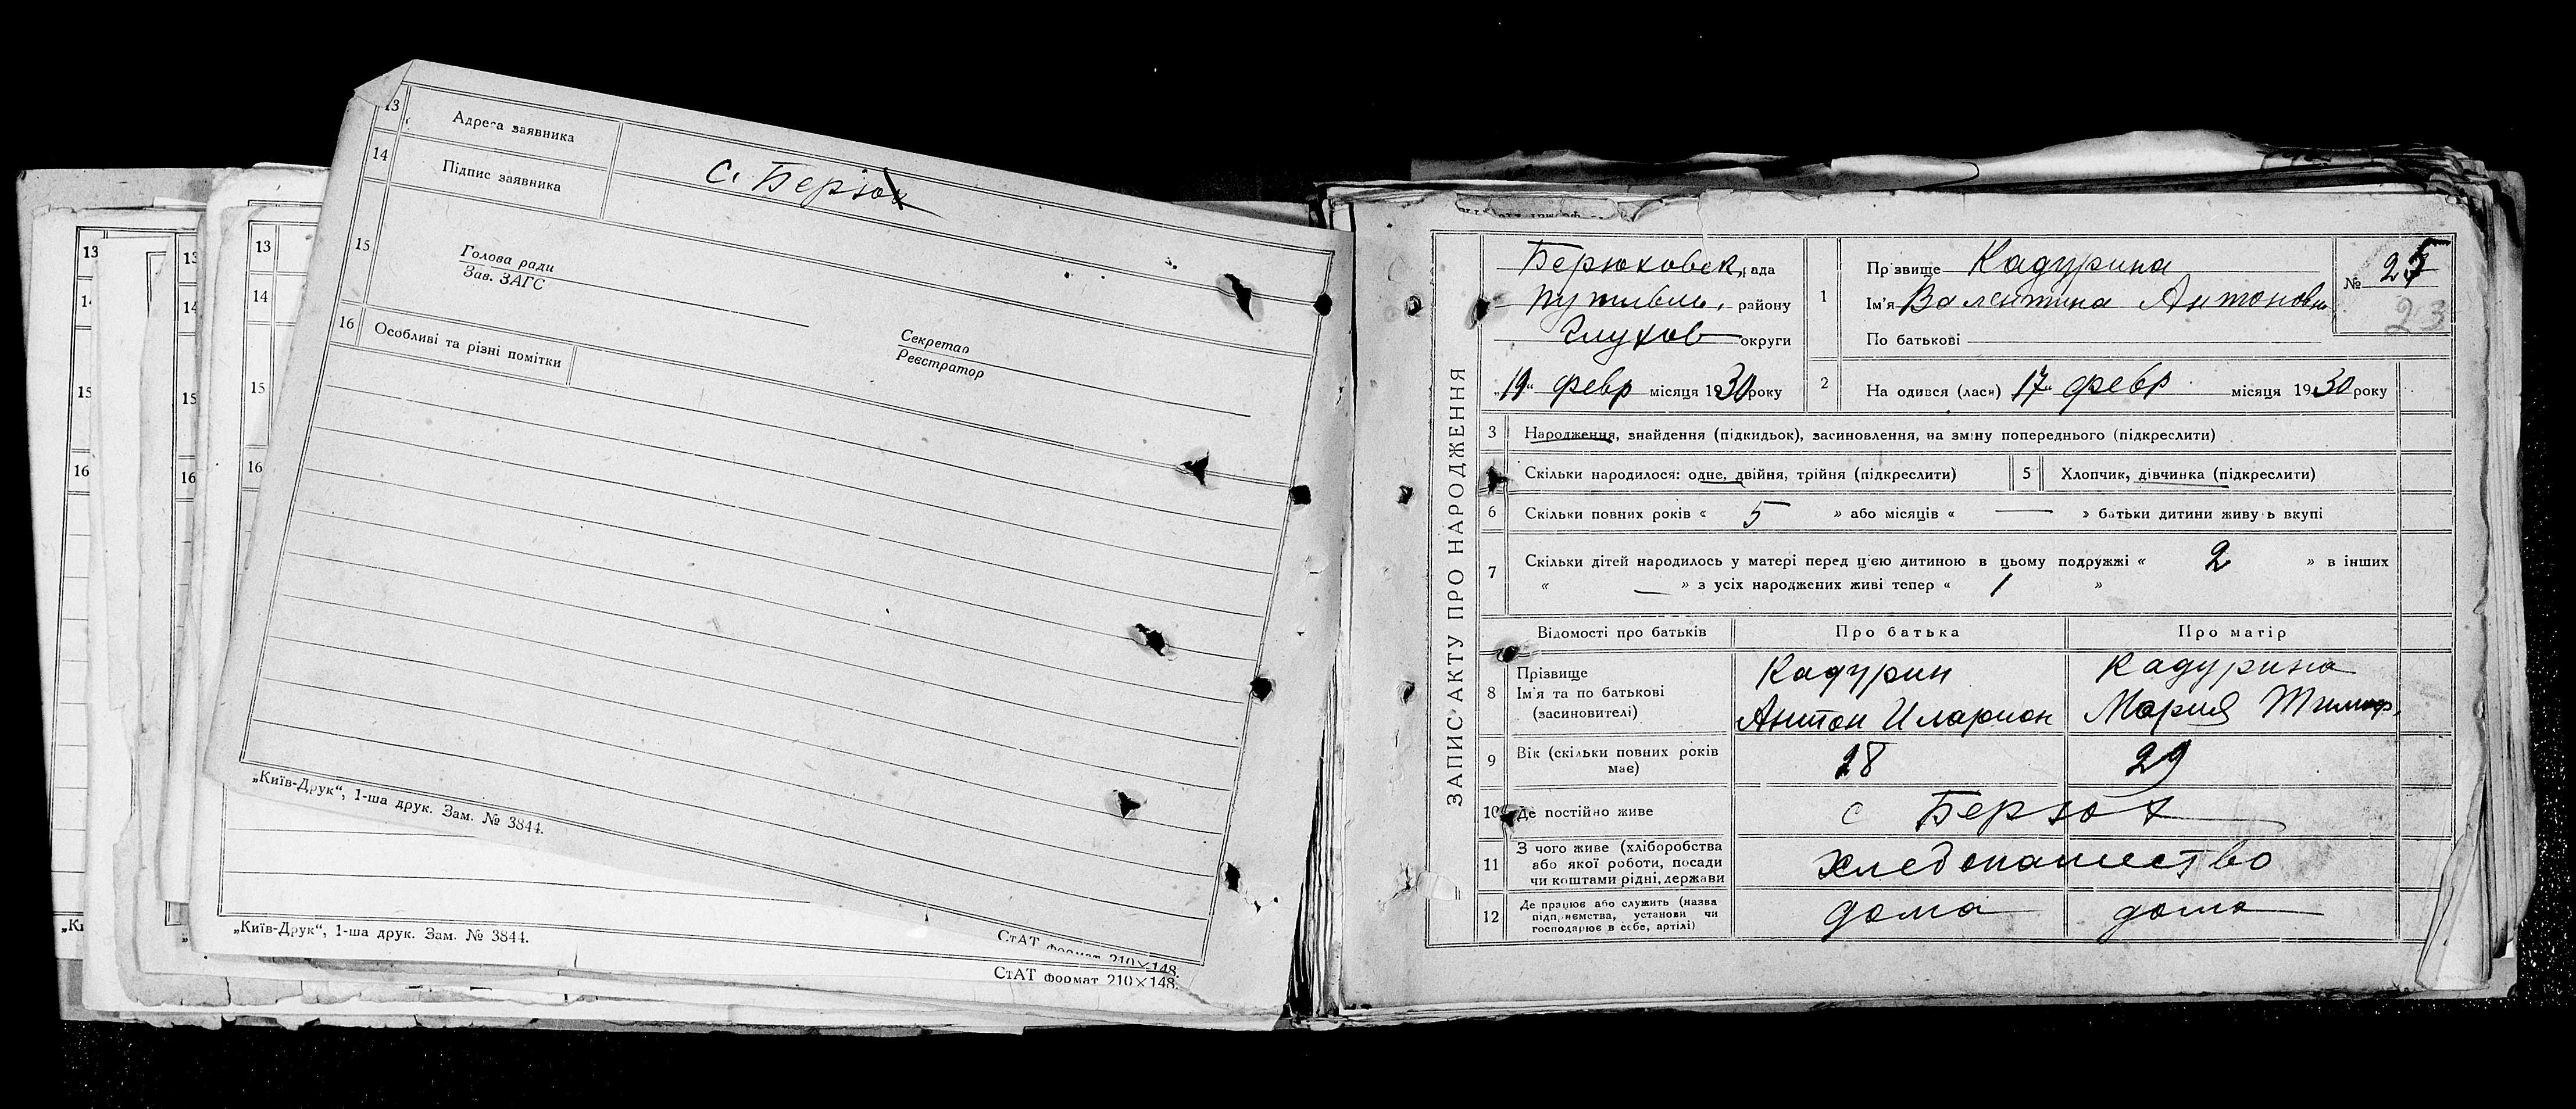 13 Адреса заявника
с. Берюх
14 Підпис заявника
15
Голова ради
Зав. ЗАГС
Секретар
Реєстратор
16 Особливі та різні помітки
„Київ-Друк“, 1-ша друк. Зам. № 3844.
СтАТ формат 210×148.
13
14
15
16
„Київ-Друк“, 1-ша друк. Зам. № 3844.
СтАТ формат 210×148.
13
15
16
13
15
16
ЗАПИС АКТУ ПРО НАРОДЖЕННЯ
Берюховск. рада
Путивль. району
Глухов округи
„19“ февр місяця 1930 року
1 Прізвище Кадурина
Ім'я Валентина Антоновн
По батькові
№ 25
23
2 На одився (лася) 17 февр місяця 1930 року
3 Народження, знайдення (підкидьок), засиновлення, на зміну попереднього (підкреслити)
Скільки народилося: одне, двійня, трійня (підкреслити) 5 Хлопчик, дівчинка (підкреслити)
6 Скільки повних років « 5 » або місяців « — » батьки дитини живуть вкупі
7 Скільки дітей народилось у матері перед ц'єю дитиною в цьому подружжі « 2 » в інших
« — » з усіх народжених живі тепер « 1 »
Відомості про батьків Про батька Про матір
8 Прізвище Кадурин Кадурина
Ім'я та по батькові
(засновителі) Антон Иларион Мария Тимоф.
9 Вік (скільки повних років
має) 28 29
10 Де постійно живе с Берюх
11 З чого живе (хліборобства
або якої роботи, посади
чи коштами рідні, держави хлебопашество
12 Де працює або служить (назва
підприємства, установи чи
господарює в себе, артілі) дома дома